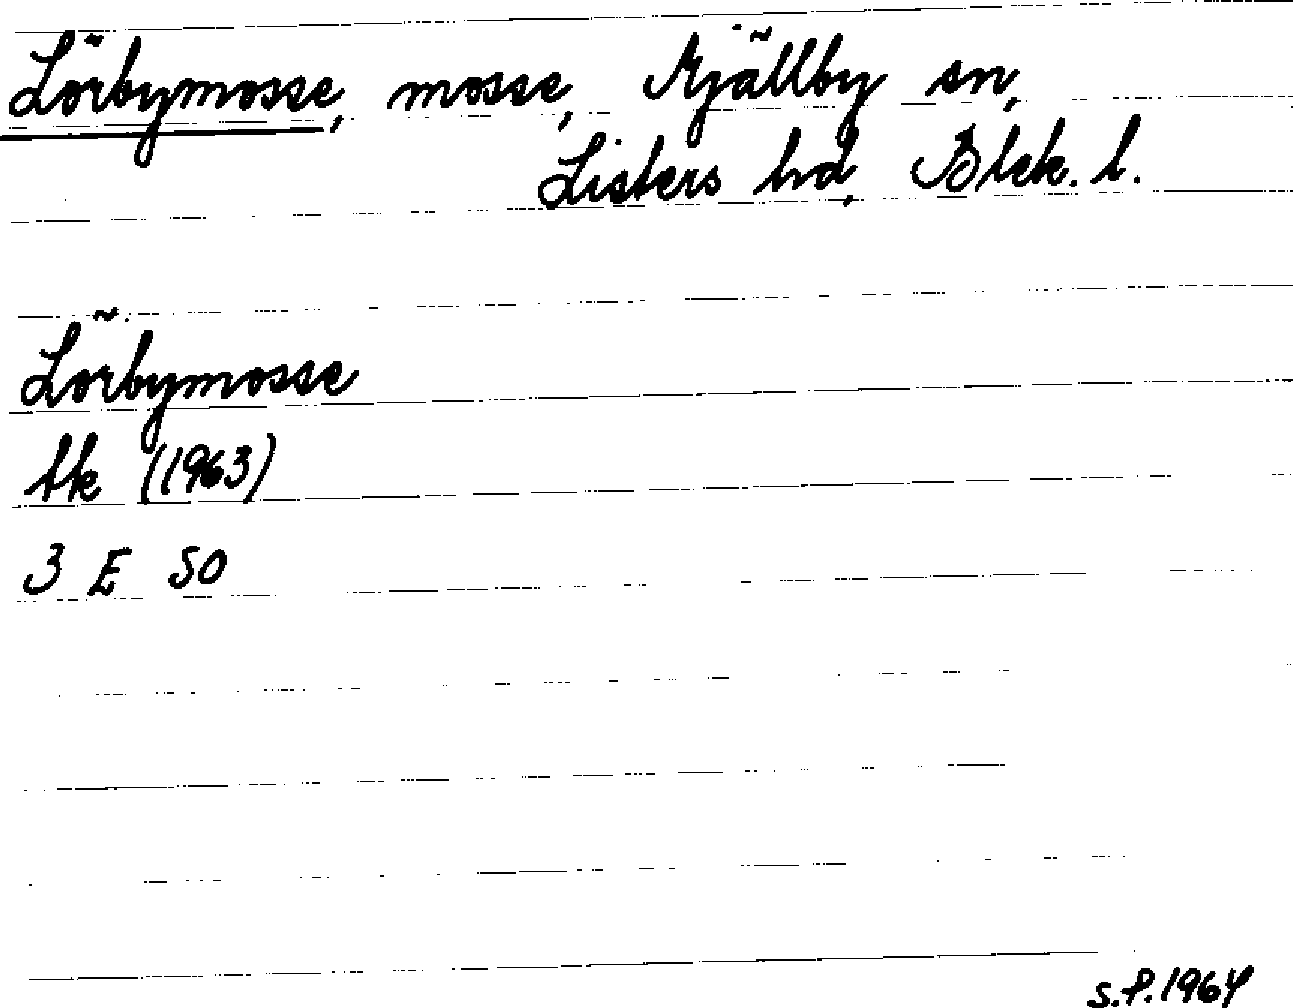 Lörbymosse, mosse, Mjällby sn,
Listers hd, Blek. l.
Lörbymosse
tk (1963)
3 E SO
S.P. 1964